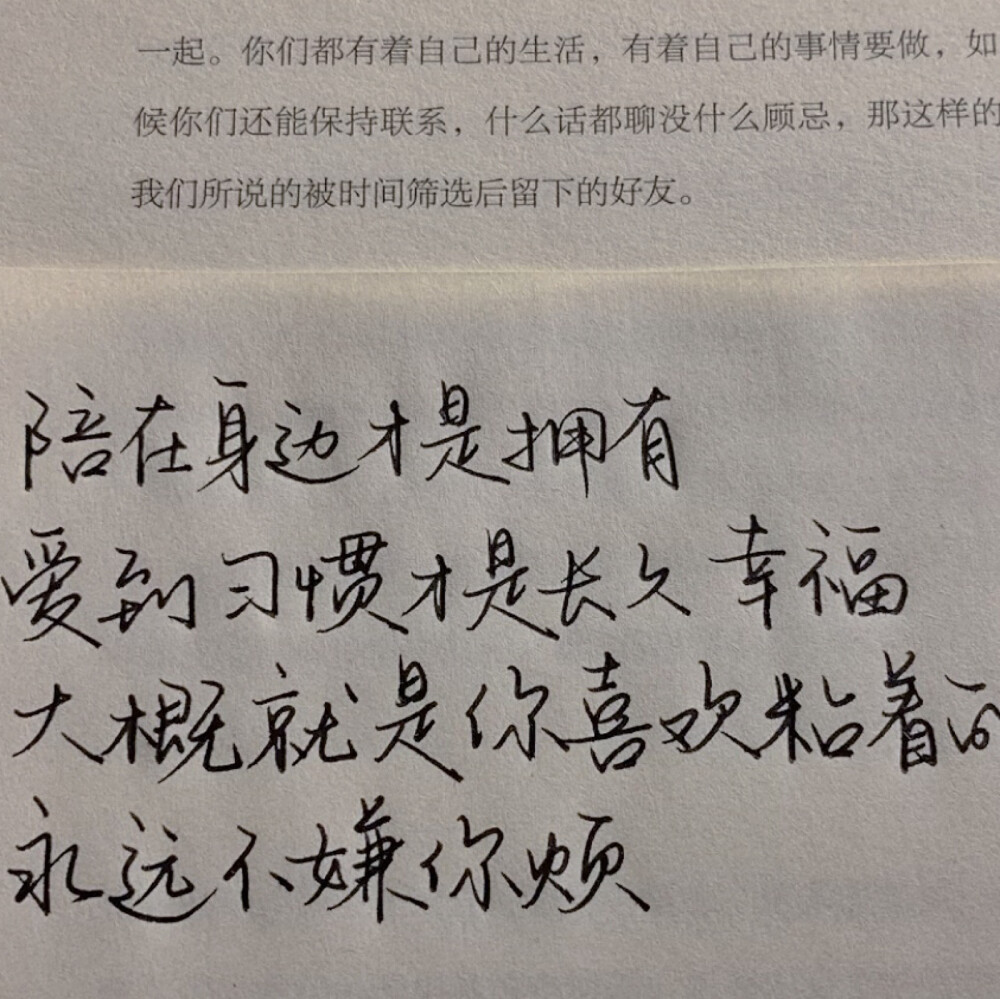 一起。你们都有着自己的生活，有着自己的事情要做，如
候你们还能保持联系，什么话都聊没什么顾忌，那这样的
我们所说的被时间筛选后留下的好友。
陪在身边才是拥有
爱到习惯才是长久幸福
大概就是你喜欢粘着的
永远不嫌你烦